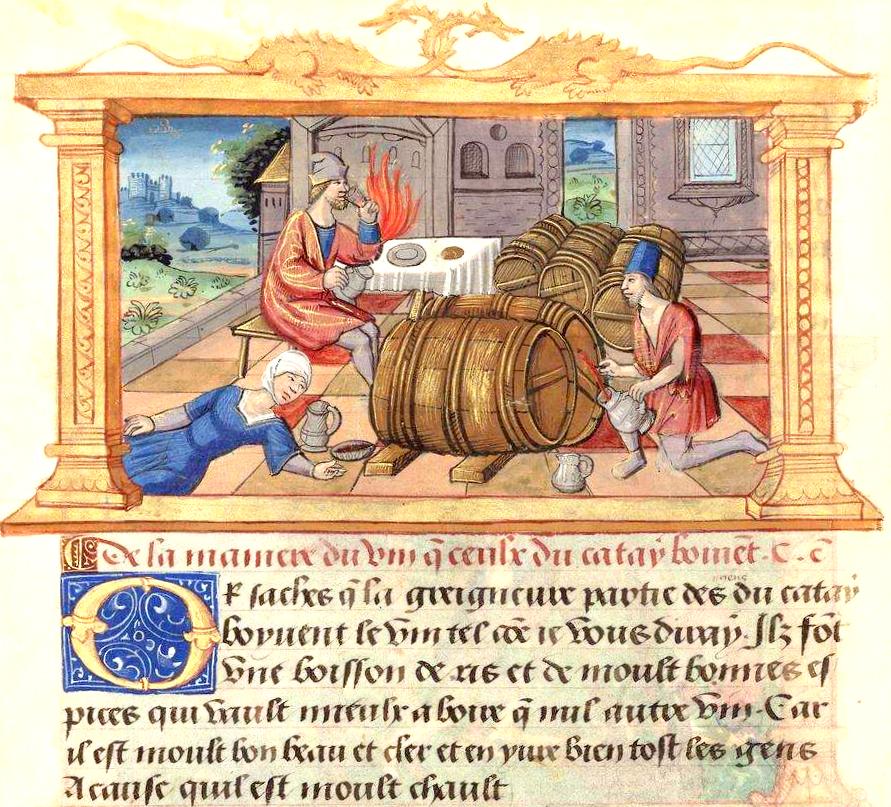 De la maniere du vin q̃ ceulx du catay boiuẽt. C. c̃
Or saches q̃ la greigneure partie des gens du catay
boyuent le vin tel cõe ie vous diray. Ilz fõt
vne boisson de ris et de moult bonnes es
pices qui vault mieulx a boire q̃ nul autre vin. Car
il est moult bon beau et cler et en yure bien tost les gens
A cause quil est moult chault